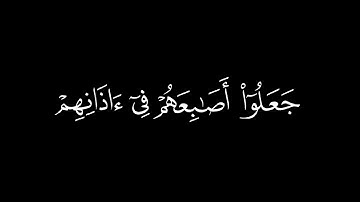 جَعَلُوٓا۟ أَصَـٰبِعَهُمْ فِىٓ ءَاذَانِهِمْ